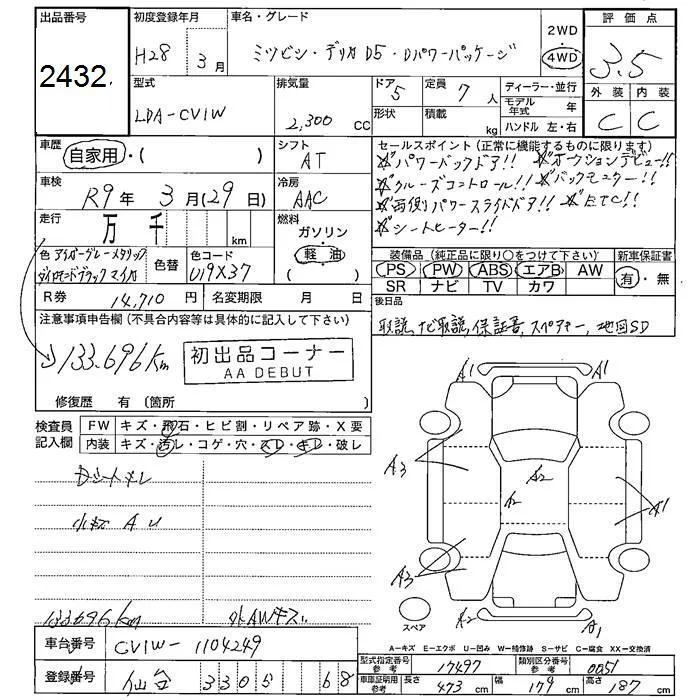 出品番号
2432
初度登録年月
H28 3月
車名・グレード
ミツビシ・デリカD5・Dパワーパッケージ
2WD
4WD
評価点
3.5
外装 内装
C C
型式
LDA-CV1W
排気量
2,300 CC
ドア 5
形状
定員 7 人
積載 kg
ディーラー・並行
モデル年式 年
ハンドル 左・右
車歴
自家用・( )
シフト
AT
セールスポイント(正常に機能するものに限ります)
パワーバックドア!! オークションデビュー!!
クルーズコントロール!! バックモニター!!
両側パワースライドドア!! ETC!!
シートヒーター!!
車検
R9年 3月(29日)
冷房
AAC
走行
万 千 km
燃料
ガソリン
軽油
( )
色 アイガーグレーメタリック
ダイヤモンドブラックマイカ
色替
色コード
U19X37
装備品(純正品に限り○をつけて下さい)
新車保証書
PS PW ABS エアB AW
SR ナビ TV カワ
有・無
R券 14,710円
名変期限 月 日
後日品
取説,ナビ取説,保証書,スペアキー,地図SD
注意事項申告欄(不具合内容等は具体的に記入して下さい)
133.696Km
初出品コーナー
AA DEBUT
修復歴 有(箇所 )
検査員記入欄
FW キズ・飛石・ヒビ割・リペア跡・X要
内装 キズ・汚レ・コゲ・穴・スレ・キレ・破レ
小キズ A U
133696km
外AWキズ
A1 A1
A3
A2
A2
A1
A3
A2
A1
スペア
A=キズ E=エクボ U=凹み W=補修跡 S=サビ C=腐食 XX=交換済
車台番号 CV1W-1104249
登録番号 仙台 3305 68
型式指定番号参考 17497
類別区分番号参考 0051
車庫証明用参考 長さ 473cm 幅 179cm 高さ 187cm